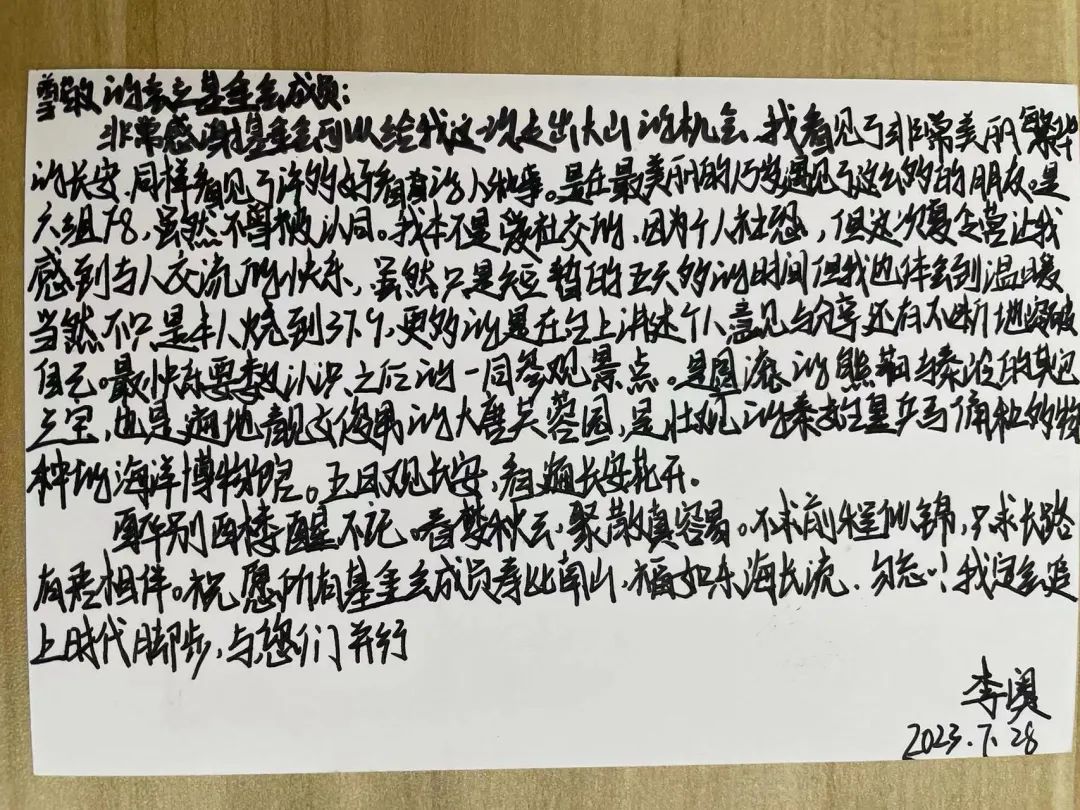 尊敬的基金会成员：
非常感谢基金会可以给我这次走出大山的机会，我看见了非常美丽繁华
的长安，同样看见了许多好看的人和事。是在最美丽的见了这么多的朋友。是
六组78，虽然不曾被认同。我本不是爱社交的，因为个人社恐，但这次夏令营让我
感到与人交流的快乐，虽然只是短暂的五天多的时间但我也体会到温暖
当然不只是本人烧到37.9，更多的是在台上讲述个人意见与分享还有不断地突破
自己。最快乐要数认识之后的一同参观景点。是圆滚的熊猫与秦岭的其它
三宝，也是遍地的大唐芙蓉园，是壮观的秦始皇兵马俑和多物
种的海洋博物馆。五日观长安，看遍长安花开。
醉别西楼醒不记。春梦秋云，聚散真容易。不求前程似锦，只求长路
有相伴。祝愿所有基金会成员寿比南山，福如东海长流，勿忘！我定会追
上时代脚步，与您们并行
李奥
2023.7.28